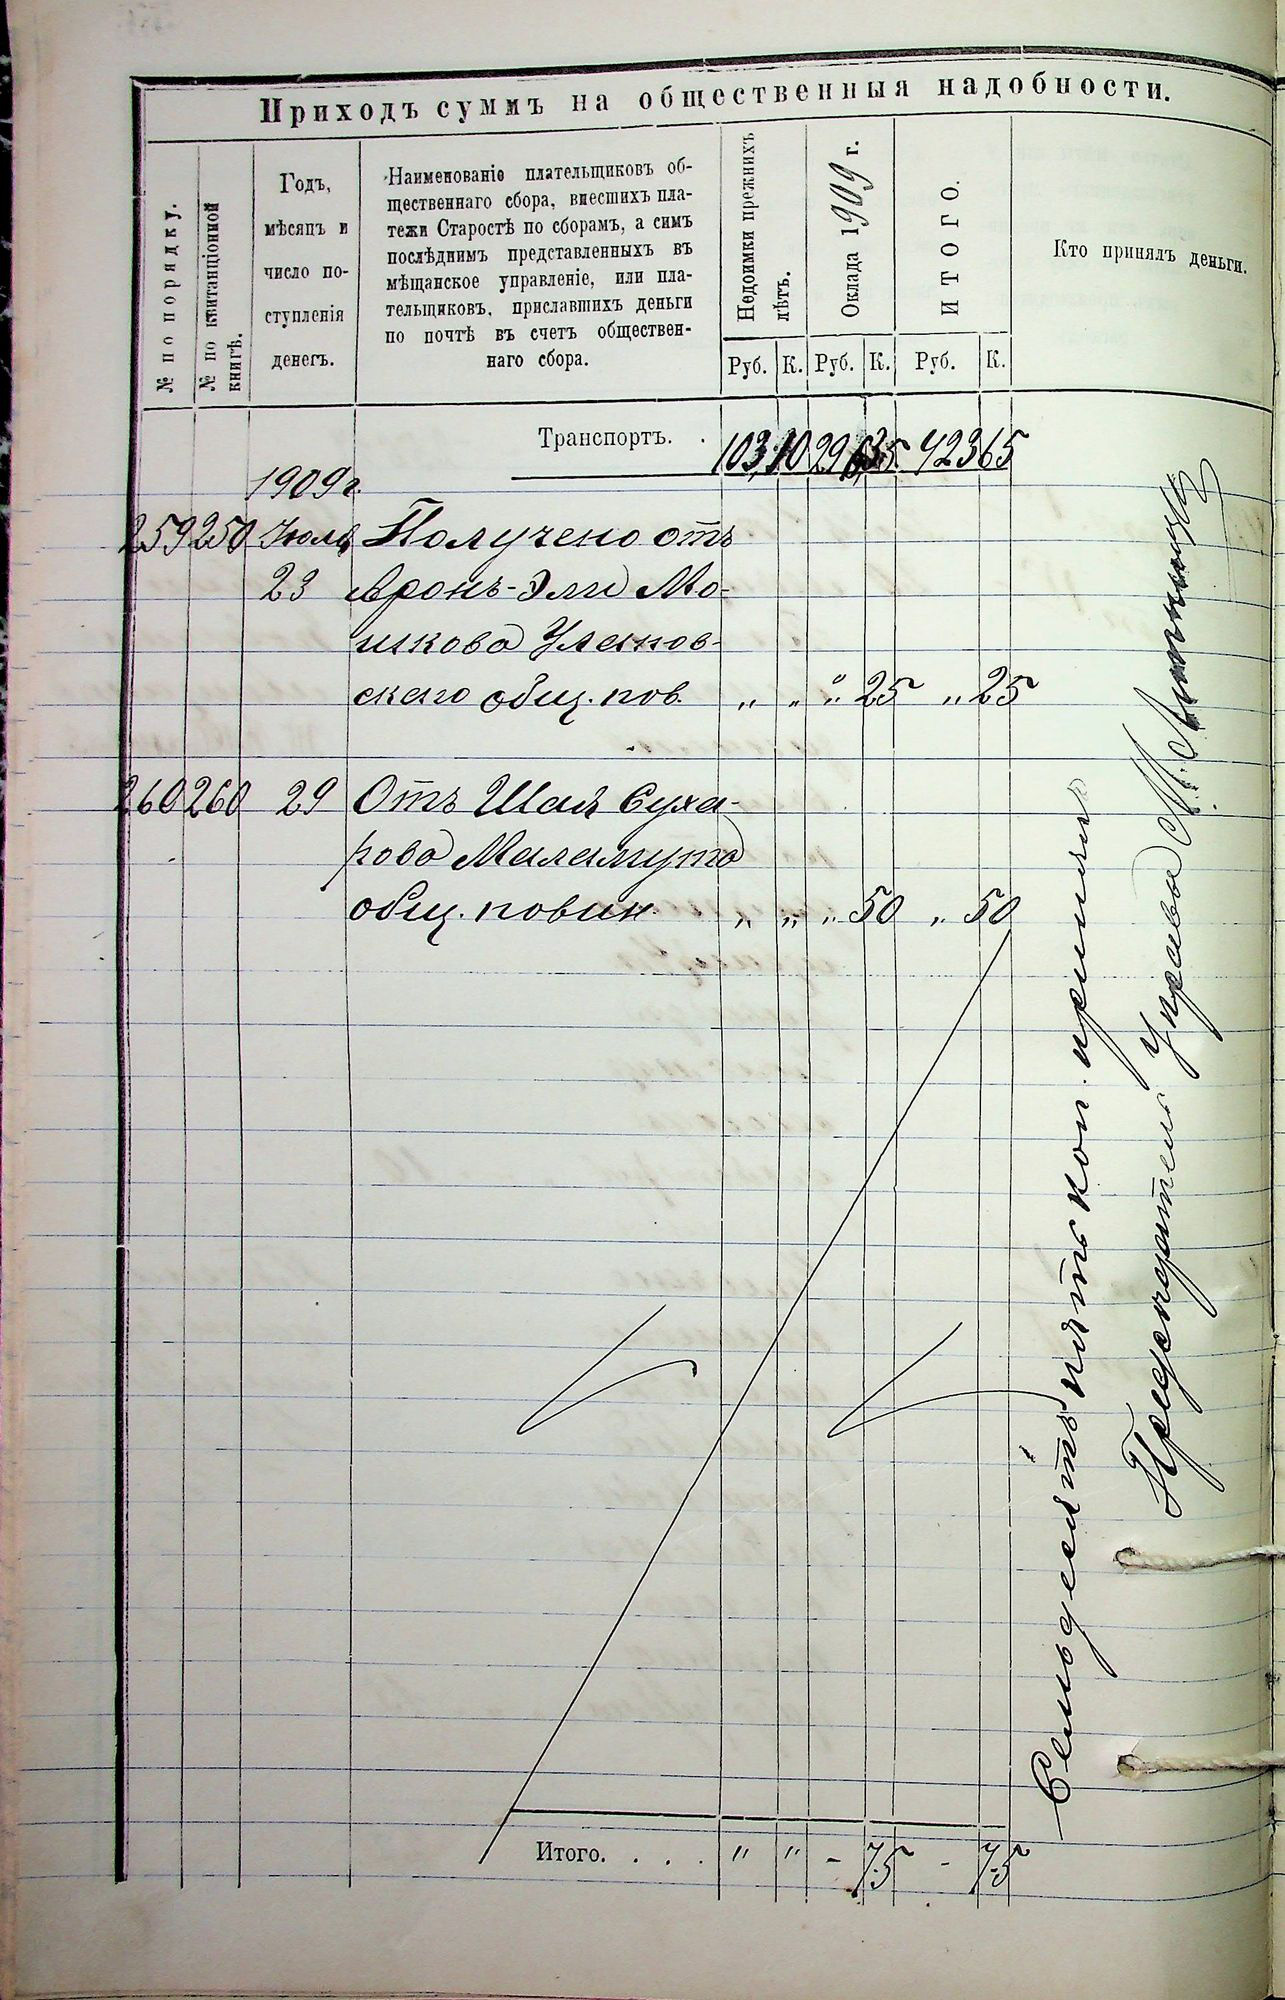 Приходъ суммъ на общественныя надобности.
№ по порядку.
№ по квитанціонной
книгѣ.
Годъ,
мѣсяцъ и
число по-
ступленія
денегъ.
Наименованіе плательщиковъ об-
щественнаго сбора, внесшихъ пла-
тежи Старостѣ по сборамъ, а симъ
послѣднимъ представленныхъ въ
мѣщанское управленіе, или пла-
тельщиковъ, приславшихъ деньги
по почтѣ въ счетъ обществен-
наго сбора.
Недоимки прежнихъ
лѣтъ.
Оклада 1909 г.
ИТОГО.
Кто принялъ деньги.
Руб. К. Руб. К. Руб. К.
Транспортъ. . 103 10 35 423 65
1909 г.
259 250 Іюля Получено отъ
23 Аронъ-Эли Мо-
шкова Уланов-
скаго общ. пов. „ „ „ 25 „ 25
260 260 29 Отъ Шая Суха-
рова Маламуда
общ. повин. „ „ „ 50 „ 50
Семьдесятъ пять коп. принялъ
Предсѣдатель Управы М.
Итого. . . . " " - 75 - 75